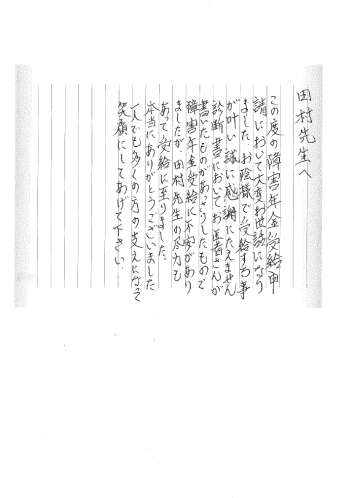 田村先生へ
この度の障害年金受給申
請において大変お世話になり
ました。お陰様で受給する事
が叶い誠に感謝にたえません
診断書においてお医者さんが
書いたものがあっさりしたもので
障害年金受給に不安があり
ましたが、田村先生の尽力も
あって受給に至りました。
本当にありがとうございました
一人でも多くの方の支えになって
笑顔にしてあげて下さい。